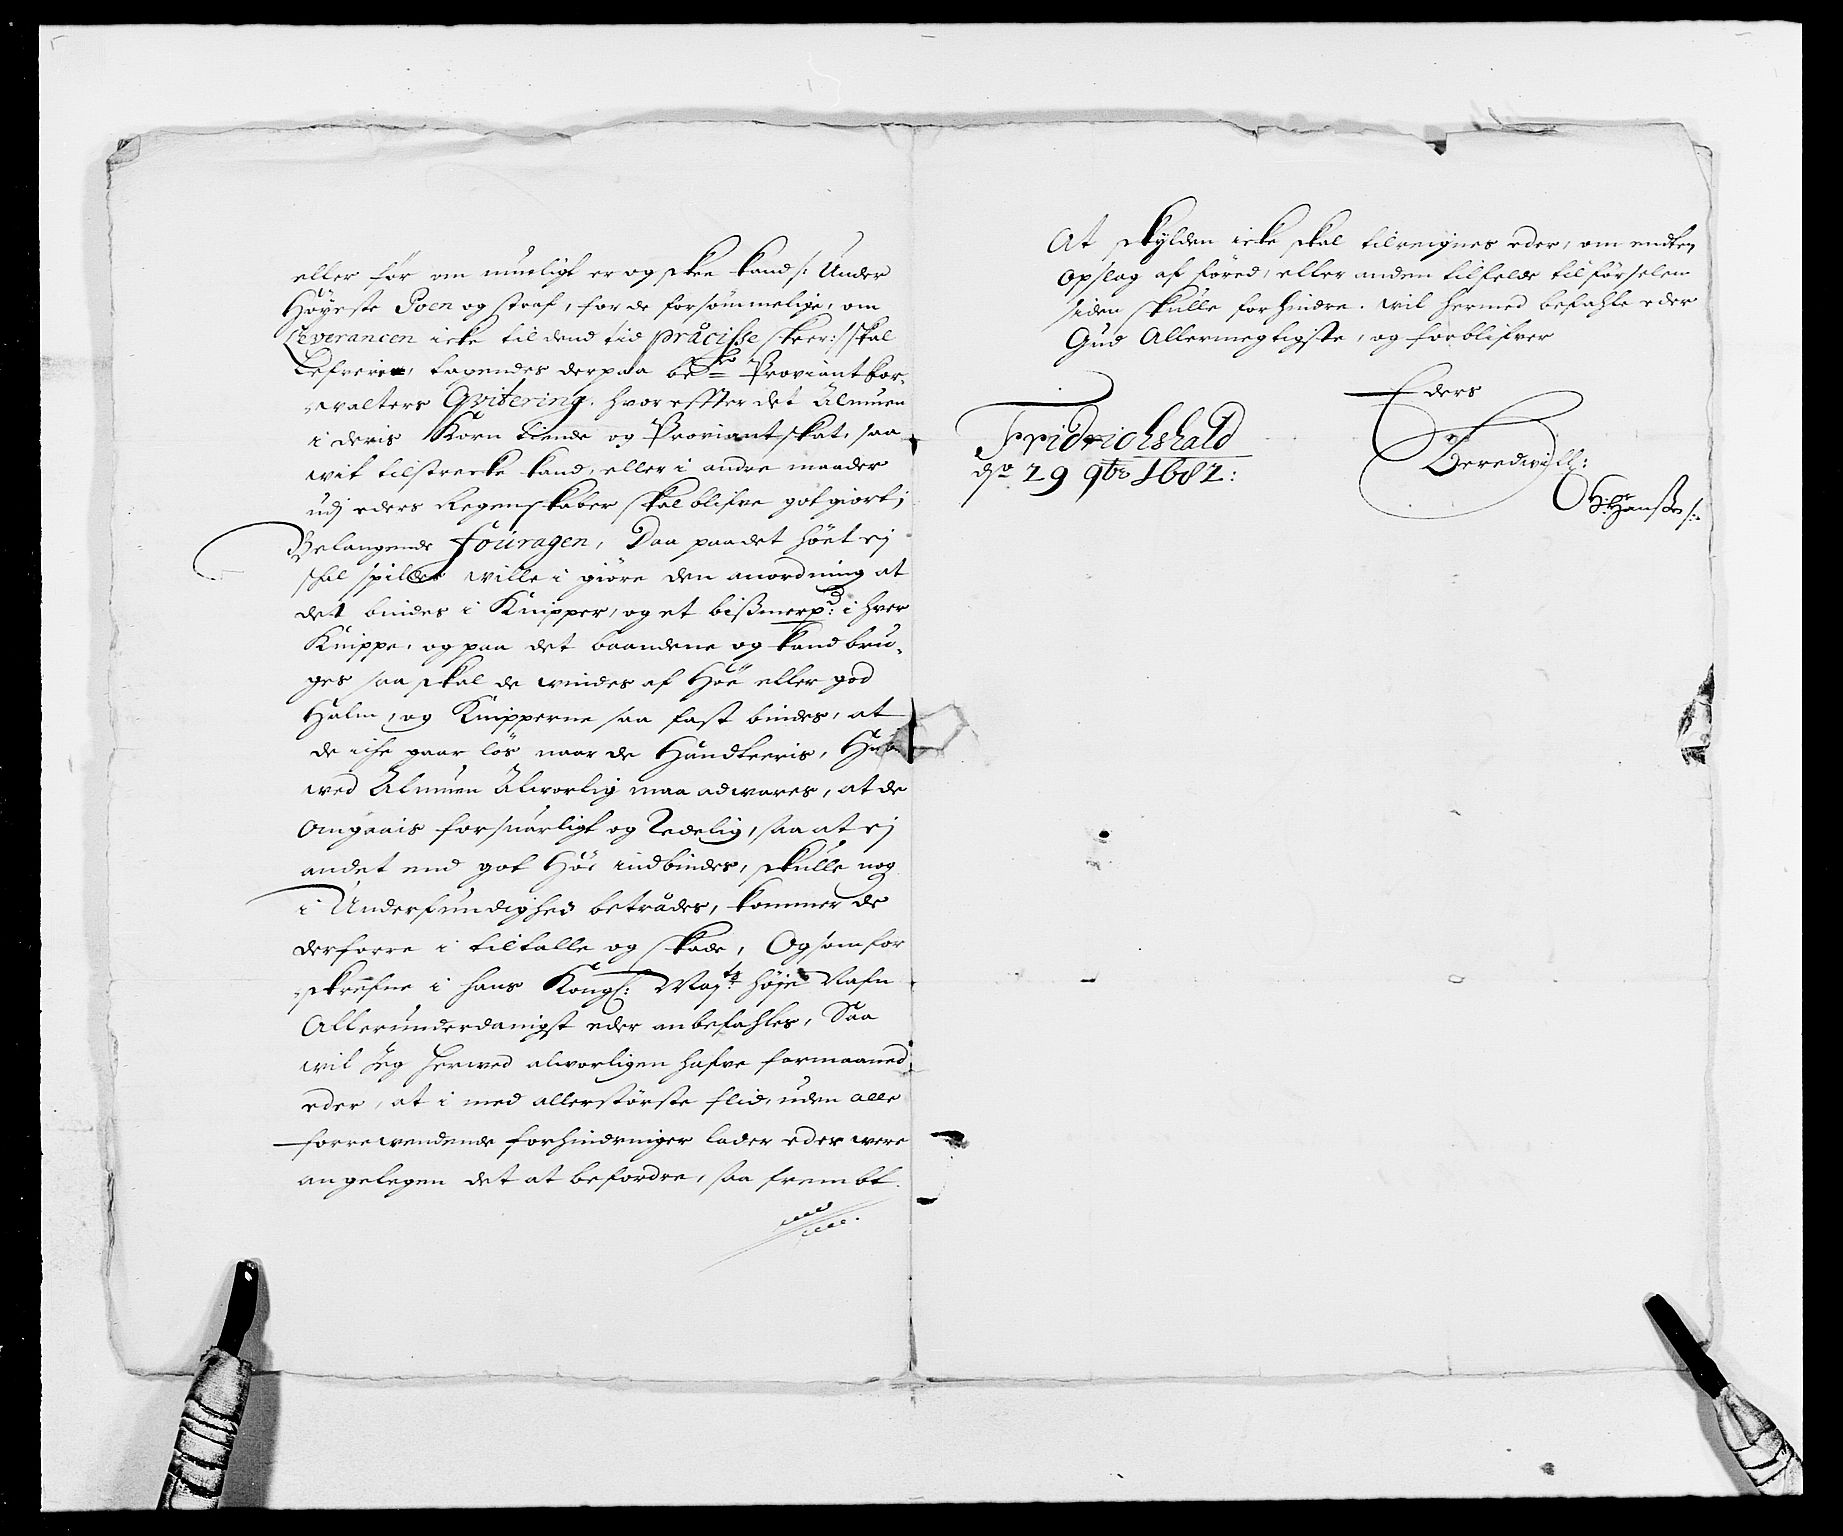 eller för om mueligt er og skee kand /: Under
Höyeste Poen og straf, for de forsömmelige, om
Leverancen icke til dend tid præcisse skeer :/ skal
Lefvere, tagendes derpaa be.te Proviantfor-
walters Qvitering. hvor effter det Almuen
i deris Korn tiende og Proviantskat, saa
wit tilstrecke kand, eller i andre maader
udj eders Regenskaber skal blifve got giort;
Belangende fouragen, Daa paa det höet ej
skal spildes wille i giöre den anordning at
det bindes i Knipper, og et bißmerp.d: i hver
Knippe, og paa det baandene og kand bru-
ges saa skal de windes af Höe eller god
Halm, og Knipperne saa fast bindes, at
de icke gaar lös naar de Handteeris,
wed Almuen Alvorlig maa adwares, at de
omgaais forsuarligt og Redelig, saa at ej
andet end got Höe indbindes, skulle nog
i Underfundighed betrædes, kommer de
derforre i tiltalle og skade, Og som for
-skrefne i hans Kongl: May.tz höje Nafn
Allerunderdanigst eder anbefahles, Saa
wil Jeg herwed alvorligen hafve formaaned
eder, at i med allerstörste flid, uden alle
forrewendende forhindringer lader eder were
angelegen det at befordre, saa frembt
At skylden icke skal tilreignes eder, om endten
opslag af föred, eller anden tilfelde tilförselen
siden skulle forhindre. wil hermed befahle eder
Gud Allermegtigste, og forblifver
Eders
Fridrichshald
Beredwill:
d: 29 9br 1682:
H: Hanßen